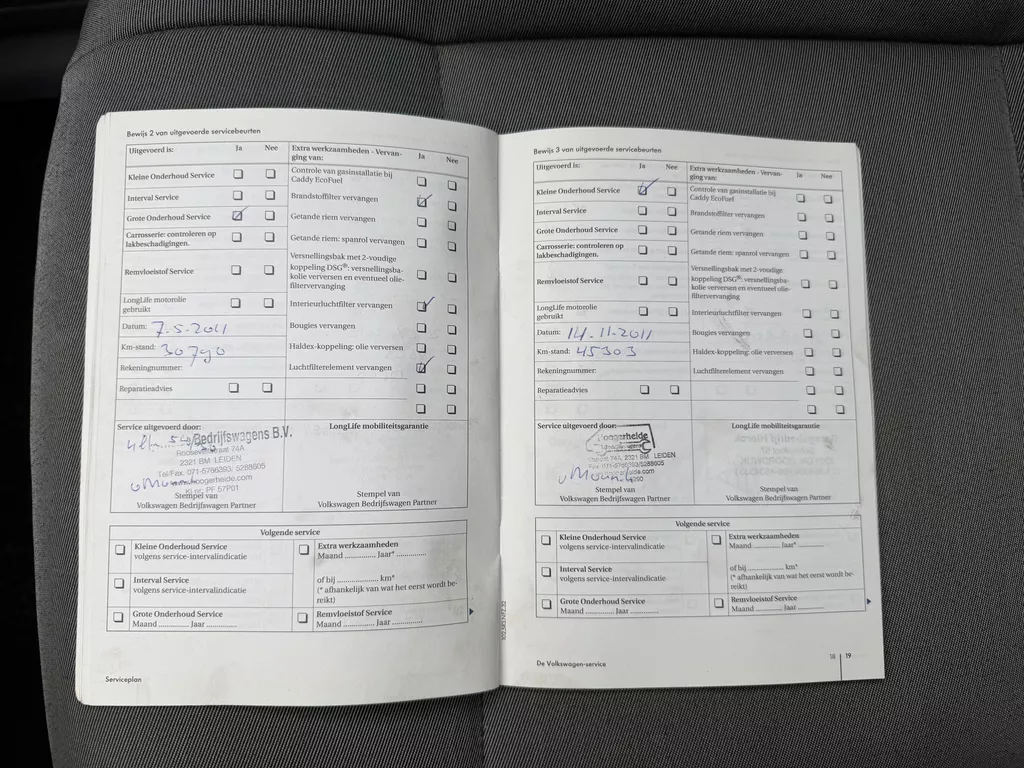 Bewijs 2 van uitgevoerde servicebeurten
Uitgevoerd is: Ja Nee
Kleine Onderhoud Service
Interval Service
Grote Onderhoud Service
Carrosserie: controleren op
lakbeschadigingen.
Remvloeistof Service
LongLife motorolie
gebruikt
Datum: 7.5.2011
Km-stand: 30790
Rekeningnummer:
Reparatieadvies
Extra werkzaamheden - Vervan-
ging van: Ja Nee
Controle van gasinstallatie bij
Caddy EcoFuel
Brandstoffilter vervangen
Getande riem vervangen
Getande riem: spanrol vervangen
Versnellingsbak met 2-voudige
koppeling DSG®: versnellingsba-
kolie verversen en eventueel olie-
filtervervanging
Interieurluchtfilter vervangen
Bougies vervangen
Haldex-koppeling: olie verversen
Luchtfilterelement vervangen
Service uitgevoerd door:
Bedrijfswagens B.V.
74A
2321 BM LEIDEN
Tel/Fax. 071-5766393/ 5288605
hoogerheide.com
PF 57P01
Stempel van
Volkswagen Bedrijfswagen Partner
LongLife mobiliteitsgarantie
Stempel van
Volkswagen Bedrijfswagen Partner
Volgende service
Kleine Onderhoud Service
volgens service-intervalindicatie
Interval Service
volgens service-intervalindicatie
Grote Onderhoud Service
Maand ............ Jaar ............
Extra werkzaamheden
Maand ............ Jaar* ............
of bij ................ km*
(* afhankelijk van wat het eerst wordt be-
reikt)
Remvloeistof Service
Maand ............ Jaar ............
Serviceplan
Bewijs 3 van uitgevoerde servicebeurten
Uitgevoerd is: Ja Nee
Kleine Onderhoud Service
Interval Service
Grote Onderhoud Service
Carrosserie: controleren op
lakbeschadigingen.
Remvloeistof Service
LongLife motorolie
gebruikt
Datum: 14.11-2011
Km-stand: 45303
Rekeningnummer:
Reparatieadvies
Extra werkzaamheden - Vervan-
ging van: Ja Nee
Controle van gasinstallatie bij
Caddy EcoFuel
Brandstoffilter vervangen
Getande riem vervangen
Getande riem: spanrol vervangen
Versnellingsbak met 2-voudige
koppeling DSG®: versnellingsba-
kolie verversen en eventueel olie-
filtervervanging
Interieurluchtfilter vervangen
Bougies vervangen
Haldex-koppeling: olie verversen
Luchtfilterelement vervangen
Service uitgevoerd door:
Hoogerheide
74A, 2321 BM LEIDEN
Stempel van
Volkswagen Bedrijfswagen Partner
LongLife mobiliteitsgarantie
Stempel van
Volkswagen Bedrijfswagen Partner
Volgende service
Kleine Onderhoud Service
volgens service-intervalindicatie
Interval Service
volgens service-intervalindicatie
Grote Onderhoud Service
Maand ............ Jaar ............
Extra werkzaamheden
Maand ............ Jaar* ............
of bij ................ km*
(* afhankelijk van wat het eerst wordt be-
reikt)
Remvloeistof Service
Maand ............ Jaar ............
De Volkswagen-service
18 | 19